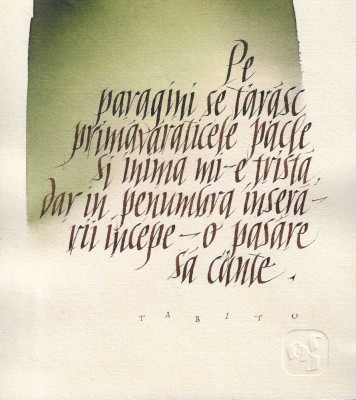 Pe
paragini se tărăsc
primăvăraticele pâcle
si inima mi-e tristă,
dar in penumbra inseră-
rii incepe-o pasăre
să cânte.
TABITO